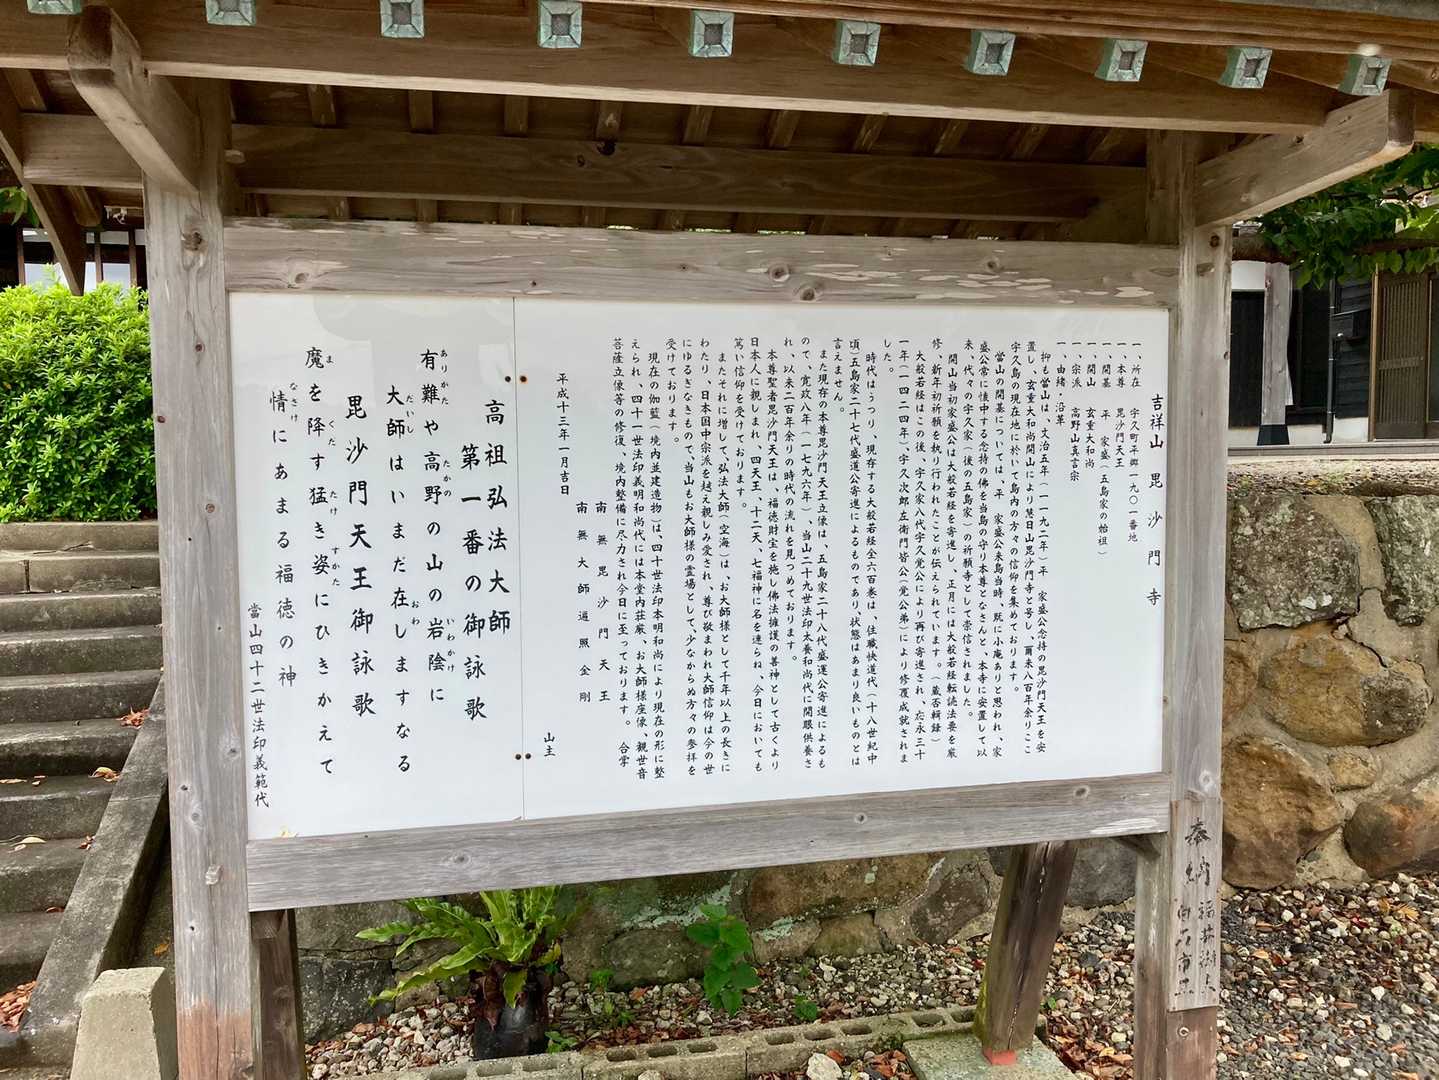 吉祥山 毘沙門寺
一、所在 宇久町平郷一九〇一番地
一、本尊 毘沙門天王
一、開基 平 家盛(五島家の始祖)
一、開山 玄重大和尚
一、宗派 高野山真言宗
一、由緒・沿革
抑も當山は、文治五年(一一九二年)平 家盛公念持の毘沙門天王を安
置し、玄重大和尚開山により慧日山毘沙門寺と号し、爾来八百年余りここ
宇久島の現在地に於いて島内の方々の信仰を集めております。
當山の開基については、平 家盛公来島当時、既に小庵ありと思われ、家
盛公常に懐中する念持の佛を当島の守り本尊となさんと、本寺に安置して以
来、代々の宇久家(後の五島家)の祈願寺として崇信されました。
開山当初家盛公は大般若経を寄進し、正月には大般若経転読法要を厳
修、新年初祈願を執り行われたことが伝えられています。(蔵否輯録)
大般若経はこの後、宇久家八代宇久覚公により再び寄進され、応永三十
一年(一四二四年)、宇久次郎左衛門皆公(覚公弟)により修覆成就されま
した。
時代はうつり、現存する大般若経全六百巻は、住職快道代(十八世紀中
頃)五島家二十七代盛道公寄進によるものであり、状態はあまり良いものとは
言えません。
また現存の本尊毘沙門天王立像は、五島家二十八代盛運公寄進によるも
ので、寛政八年(一七九六年)、当山二十九世法印太養和尚代に開眼供養さ
れ、以来二百年余りの時代の流れを見つめております。
本尊聖者毘沙門天王は、福徳財宝を施し佛法擁護の善神として古くより
日本人に親しまれ、四天王、十二天、七福神に名を連らね、今日においても
篤い信仰を受けております。
またそれに増して、弘法大師(空海)は、お大師様として千年以上の長きに
わたり、日本国中宗派を越え親しみ愛され、尊び敬まわれ大師信仰は今の世
にゆるぎなきもので、當山もお大師様の霊場として、少なからぬ方々の参拝を
受けております。
現在の伽藍(境内並建造物)は、四十世法印本明和尚により現在の形に整
えられ、四十一世法印義明和尚代には本堂内荘厳、お大師様座像、観世音
菩薩立像等の修復、境内整備に尽力され今日に至っております。 合掌
南無毘沙門天王
南無大師遍照金剛
平成十三年一月吉日
山主
高祖弘法大師
第一番の御詠歌
有難や高野の山の岩陰に
ありかた たかの いわかけ
大師はいまだ在しますなる
だいし おわ
毘沙門天王御詠歌
魔を降す猛き姿にひきかえて
ま くだ たけ すかた
情にあまる福徳の神
なさけ
當山四十二世法印義範代
奉納